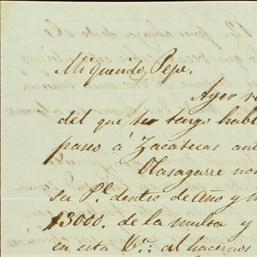 Mi querido Pepe.
Ayer
del que te tengo habl
paseo á Zacatecas ant
Olasagarre
su P.l dentro de año y m
$3000. de la multa y
en esta al hacernos